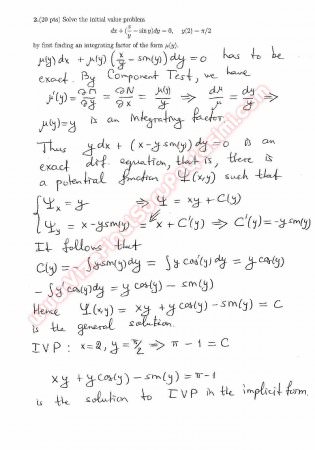 2.(20 pts) Solve the initial value problem
dx + (x/y − sin y)dy = 0, y(2) = π/2
by first finding an integrating factor of the form μ(y).
μ(y)dx + μ(y)(x/y − sin(y))dy = 0 has to be
exact. By Component Test, we have
μ'(y) = ∂M/∂y = ∂N/∂x = μ(y)/y ⇒ dμ/μ = dy/y ⇒
μ(y)=y is an integrating factor.
Thus ydx + (x − y sin(y))dy = 0 is an
exact dif. equation, that is, there is
a potential function Ψ(x,y) such that
Ψx = y ⇒ Ψ = xy + C(y)
Ψy = x − y sin(y) = x + C'(y) ⇒ C'(y) = −y sin(y)
It follows that
C(y) = −∫y sin(y)dy = ∫y cos'(y)dy = y cos(y)
−∫y' cos(y)dy = y cos(y) − sin(y)
Hence Ψ(x,y) = xy + y cos(y) − sin(y) = C
is the general solution.
IVP: x=2, y=π/2 ⇒ π − 1 = C
xy + y cos(y) − sin(y) = π−1
is the solution to IVP in the implicit form.